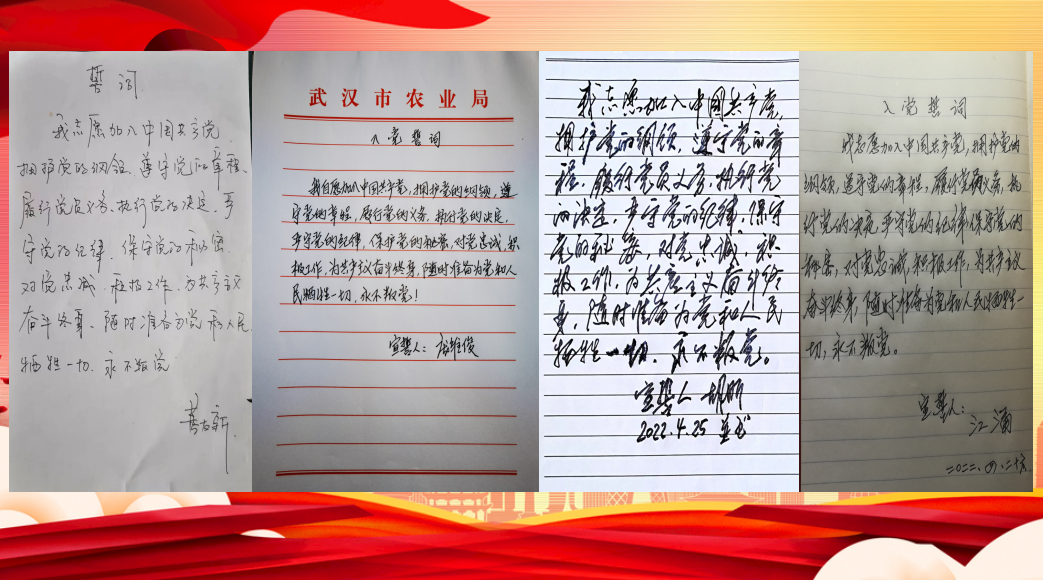 誓词
我志愿加入中国共产党
拥护党的纲领、遵守党的章程、
履行党员义务、执行党的决定、严
守党的纪律、保守党的秘密、
对党忠诚、积极工作、为共产主义
奋斗终身、随时准备为党和人民
牺牲一切、永不叛党
武汉市农业局
入党誓词
我自愿加入中国共产党,拥护党的纲领,遵
守党的章程,履行党的义务,执行党的决定,
严守党的纪律,保护党的秘密,对党忠诚,积
极工作,为共产主义奋斗终身,随时准备为党和人
民牺牲一切,永不叛党!
宣誓人:
我志愿加入中国共产党,
拥护党的纲领,遵守党的章
程,履行党员义务,执行党
的决定,严守党的纪律,保守
党的秘密,对党忠诚,积
极工作,为共产主义奋斗终
身,随时准备为党和人民
牺牲一切,永不叛党。
宣誓人 胡昕
2022.4.25
入党誓词
我志愿加入中国共产党,拥护党的
纲领,遵守党的章程,履行党员义务,执
行党的决定,严守党的纪律,保守党的
秘密,对党忠诚,积极工作,为共产主义
奋斗终身,随时准备为党和人民牺牲一
切,永不叛党。
宣誓人:
江涌
二〇二二.四.二十